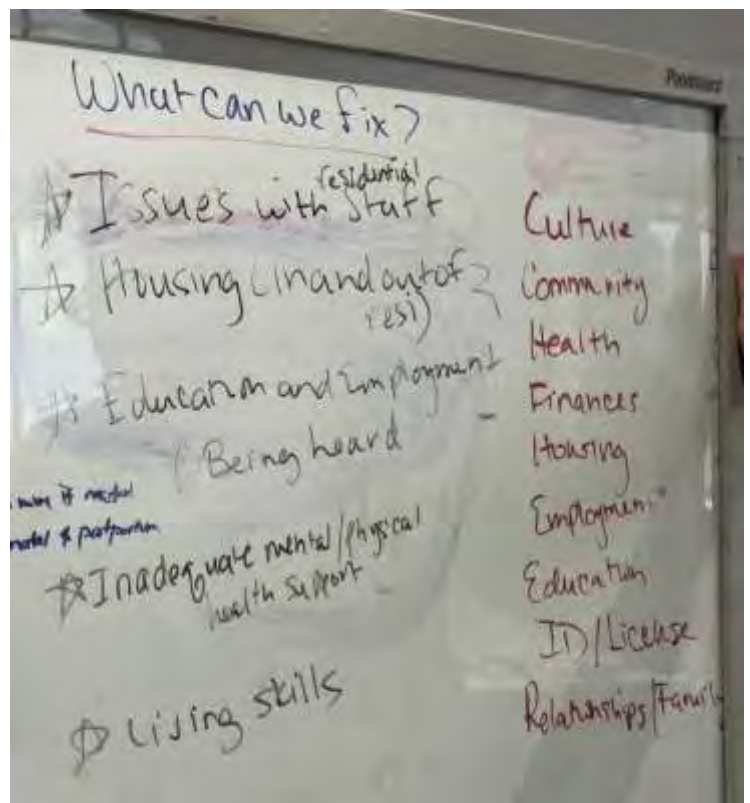 What can we fix?
Issues with residential staff
Housing (in and out of
resi)
Education and Employment
Being heard
if needed
& postpartum
Inadequate mental/physical
health support
Living skills
Culture
Community
Health
Finances
Housing
Employment
Education
ID/License
Relationships/Family